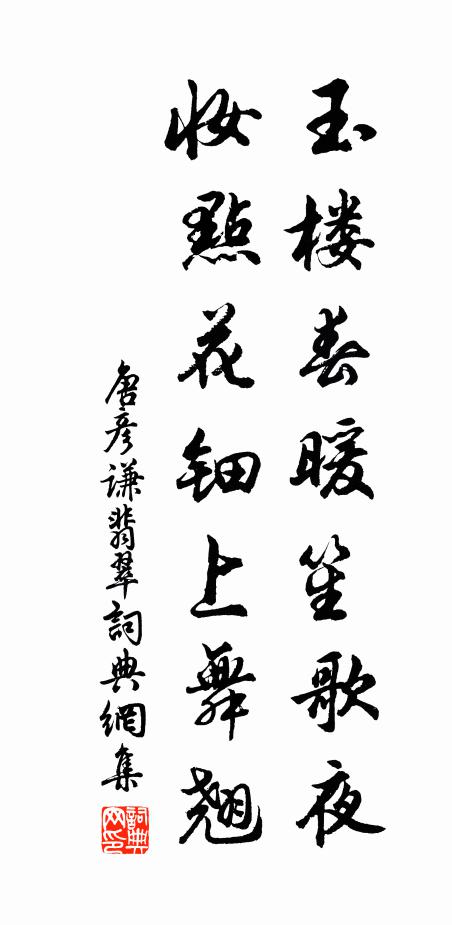 玉楼春暖笙歌夜
妝點花钿上舞翘
唐彦谦翡翠詞典網集
詞典网印